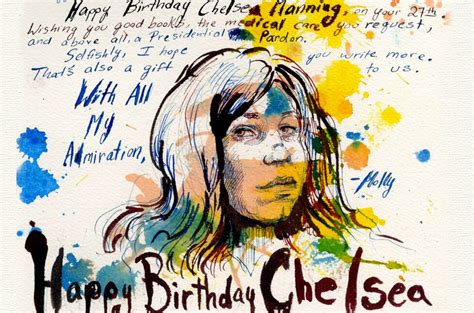 Happy Birthday Chelsea Manning, on your 27th.
Wishing you good books, the medical care you request,
and above all, a Presidential Pardon.
Selfishly, I hope you write more.
That's also a gift to us.
With All
My
Admiration,
-Molly
Happy Birthday Chelsea